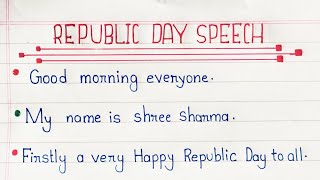 REPUBLIC DAY SPEECH
Good morning everyone.
My name is shree sharma.
Firstly a very Happy Republic Day to all.